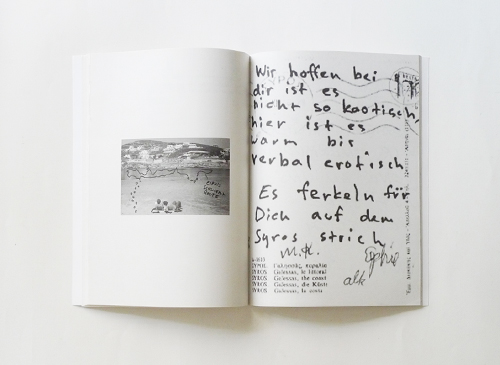 Wir hoffen bei
dir ist es
nicht so kaotisch,
hier ist es
warm bis
verbal erotisch
Es ferkeln für
Dich auf dem
Syros strich
M.K.
alk
Galissas, le littoral
Galissas, the coast
Galissas, die Küste
Galissas, la costa